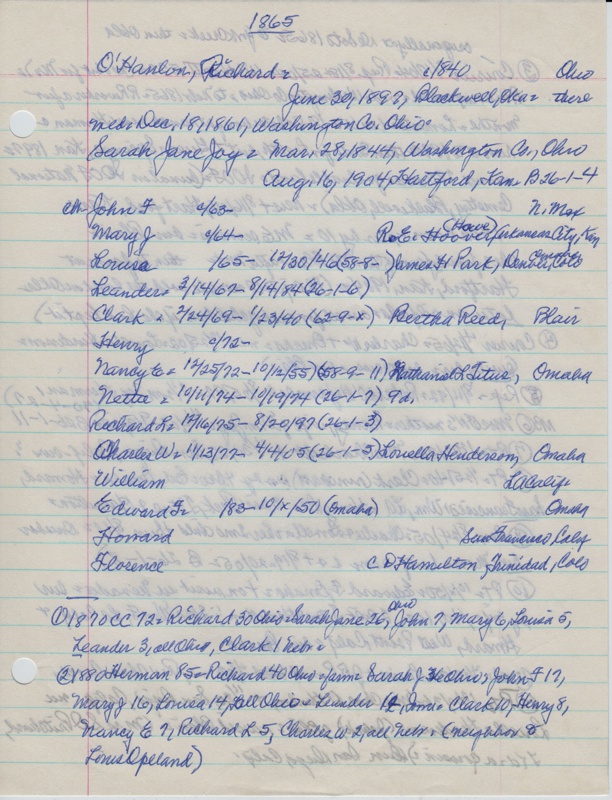 1865
O'Hanlon, Richard = c1840 Ohio
June 30, 1897, Blackwell, Oka = there
med = Dec. 18, 1861, Washington Co. Ohio =
Sarah Jane Joy = Mar. 28, 1844, Washington Co., Ohio
Aug. 16, 1904, Hartford, Kan = B 26-1-4
ch John F c/63- N. Mex
Mary J c/64- R.E. Hoover (Howe), Arkansas City, Kan
Louisa /65- 12/30/46 (58-8- ) James H Park, Denver, Colo
Leander = 3/14/67 - 8/14/84 (26-1-6)
Clark = 2/24/69 - 1/23/40 (62-9-x) Bertha Reed, Blair
Henry c/72-
Nancy E = 12/25/72 - 10/12/55) (58-9-11) Nathanal L Titus, Omaha
Nettie = 10/11/74 - 10/19/74 (26-1-7) 9d.
Richard L = 12/16/75 - 8/20/97 (26-1-3)
Charles W = 11/13/77 - 4/4/05 (26-1-5) Louella Henderson, Omaha
William La Calif
Edward F = /83 - 10/x/50 (Omaha) Omaha
Howard San Francisco, Calif
Florence C D Hamilton, Trinidad, Colo
① 1870 CC 72 = Richard 30 Ohio = Sarah Jane 26, Ohio John 7, Mary 6, Louisa 5,
Leander 3, all Ohio, Clark 1 Nebr =
② 1880 Herman 85 = Richard 40 Ohio = farm = Sarah J 36 Ohio = John F 17,
Mary J 16, Louisa 14, all Ohio = Leander 12, = Clark 10, Henry 8,
Nancy E 7, Richard L 5, Charles W 2, all Nebr = (neighbor to
Louis Opeland)